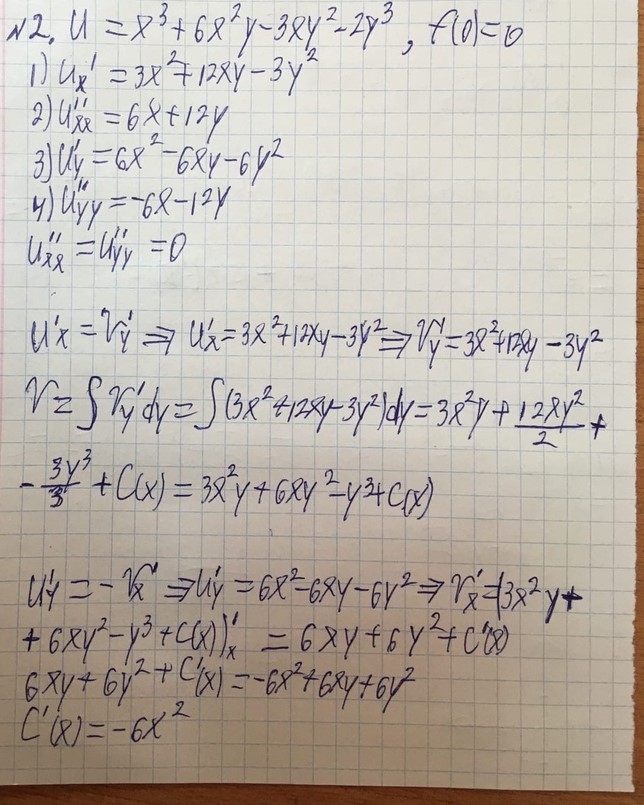 №2. U = x³ + 6x²y - 3xy² - 2y³, f(0) = 0
1) U'x = 3x² + 12xy - 3y²
2) U''xx = 6x + 12y
3) U'y = 6x² - 6xy - 6y²
4) U''yy = -6x - 12y
U''xx = U''yy = 0
U'x = V'y ⇒ U'x = 3x² + 12xy - 3y² ⇒ V'y = 3x² + 12xy - 3y²
V = ∫ V'y dy = ∫ (3x² + 12xy - 3y²) dy = 3x²y + 12xy²/2 +
- 3y³/3 + C(x) = 3x²y + 6xy² - y³ + C(x)
U'y = -V'x ⇒ U'y = 6x² - 6xy - 6y² ⇒ V'x = (3x²y +
+ 6xy² - y³ + C(x))'x = 6xy + 6y² + C'(x)
6xy + 6y² + C'(x) = -6x² + 6xy + 6y²
C'(x) = -6x²